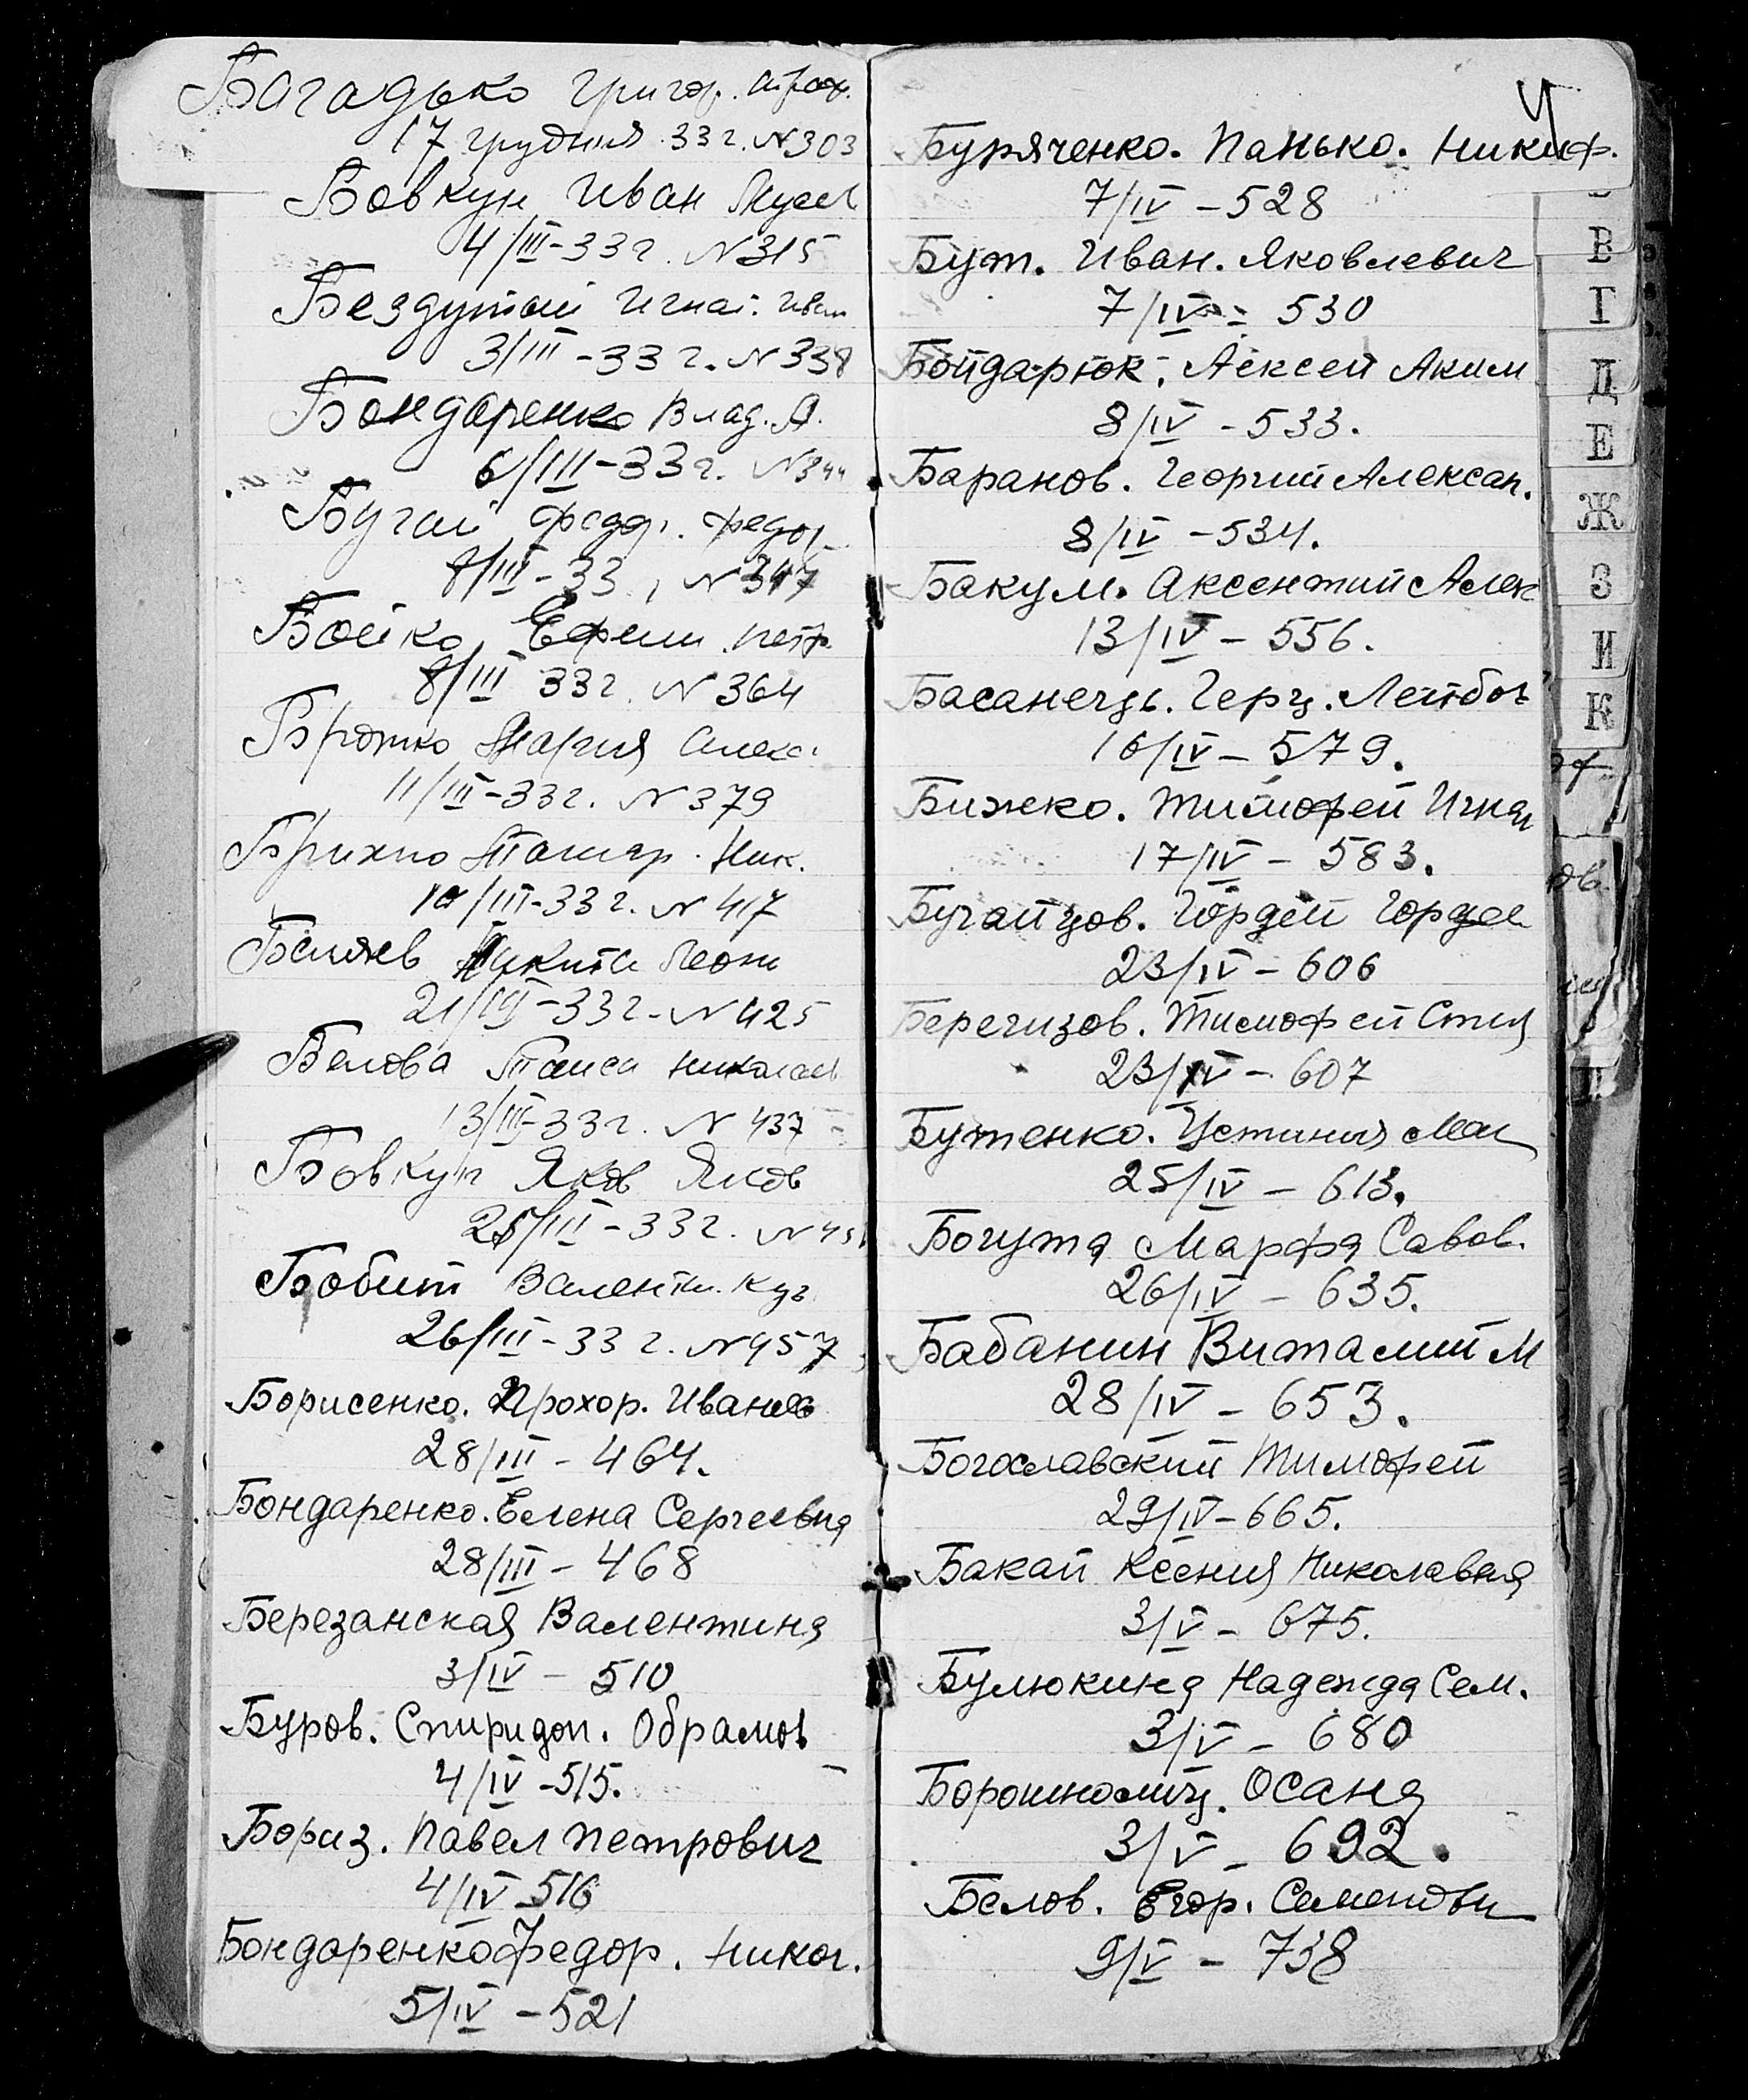 Багадько Григор. Троф.
17 грудня 33 г. N 303
Бовкун Иван Мусев
4/III-33 г. N 315
Бездутый Игнат. Иван
3/III-33 г. N 338
Бондаренко Влад. А.
6/III-33 г. N 344
Бугай Федор. Федор
8/III-33, N 347
Бойко Ефим петр.
8/III 33 г. N 364
Мария Алекс.
11/III-33 г. N 379
Ник.
/III-33 г. N 417
Беляев Никита Леон
21/III-33 г. N 425
Белова Таиса Николаев
13/III-33 г. N 437
Бовкун Яков Яков
25/III-33 г. N 451
Бобит Валенти. Куз
26/III-33 г. N 457
Борисенко. Прохор. Иванов
28/III - 464.
Бондаренко. Елена Сергеевна
28/III - 468
Березанская Валентина
3/IV - 510
Буров. Спиридон. Обрамов
4/IV - 515.
Бориз. Павел Петрович
4/IV 516
Бондаренко Федор. Никол.
5/IV - 521
Буряченко. Панько. Никиф.
7/IV - 528
Бут. Иван. Яковлевич
7/IV - 530
Бондарюк. Алексей Аким
8/IV - 533.
Баранов. Георгий Алексан.
8/IV - 534.
Бакум. Аксентий Алек
13/IV - 556.
Басанець. Герц. Лейбов
16/IV - 579.
Бижко. Тимофей Игнат
17/IV - 583.
Бугайцов. Гордей Гордее
23/IV - 606
Берегизов. Тимофей
23/IV - 607
Бутенко. Устиния
25/IV - 613.
Богута Марфа Савов.
26/IV - 635.
Бабанин Виталий М
28/IV - 653.
Богославский Тимофей
29/IV - 665.
Бакай Ксения Николавна
3/V - 675.
Булюкина Надежда Сем.
3/V - 680
Борошномиц. Осана
3/V - 692.
Белов. Егор. Семенови
9/V - 738
В
Г
Д
Е
Ж
З
И
К